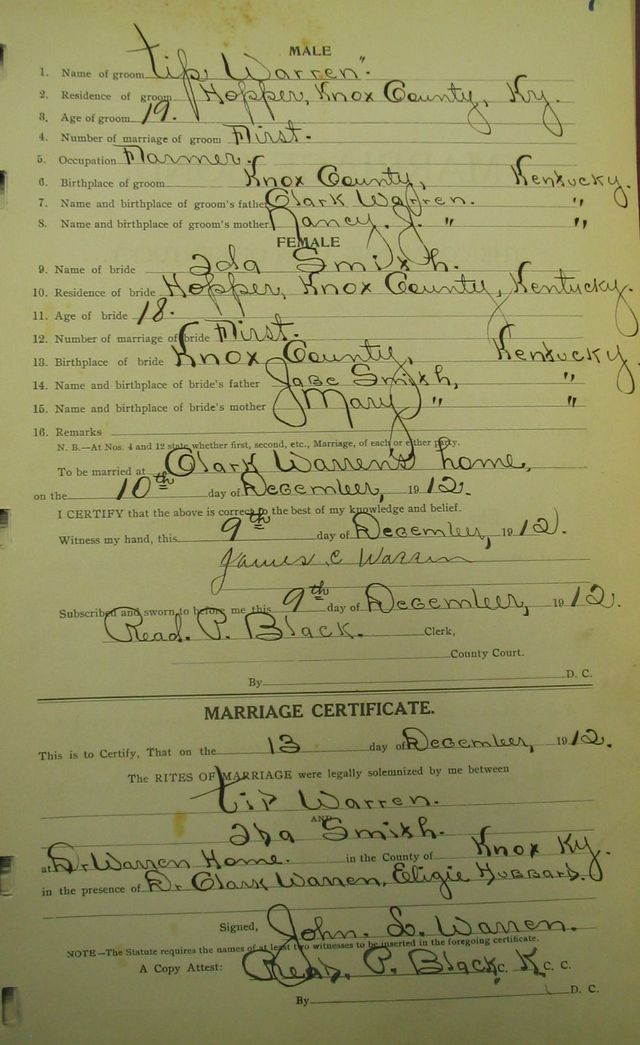 MALE
1. Name of groom Tip Warren.
2. Residence of groom Hopper, Knox County, Ky.
3. Age of groom 19.
4. Number of marriage of groom First.
5. Occupation Farmer.
6. Birthplace of groom Knox County, Kentucky.
7. Name and birthplace of groom's father Clark Warren. "
8. Name and birthplace of groom's mother Nancy. J. " "
FEMALE
9. Name of bride Ida Smith.
10. Residence of bride Hopper, Knox County, Kentucky.
11. Age of bride 18.
12. Number of marriage of bride First.
13. Birthplace of bride Knox County, Kentucky.
14. Name and birthplace of bride's father Jabe Smith, "
15. Name and birthplace of bride's mother Mary " "
16. Remarks
N. B.—At Nos. 4 and 12 state whether first, second, etc., Marriage, of each or either party.
To be married at Clark Warren's home,
on the 10th day of December, 1912.
I CERTIFY that the above is correct to the best of my knowledge and belief.
Witness my hand, this 9th day of December, 1912.
James C Warren
Subscribed and sworn to before me this 9th day of December, 1912.
Read. P. Black. Clerk,
County Court.
By D. C.
MARRIAGE CERTIFICATE.
This is to Certify, That on the 13 day of December, 1912.
The RITES OF MARRIAGE were legally solemnized by me between
Tip Warren.
AND
Ida Smith.
at Dr Warren Home. in the County of Knox Ky.
in the presence of Dr Clark Warren, Eligie Hubbard.
Signed, John. L. Warren.
NOTE—The Statute requires the names of at least two witnesses to be inserted in the foregoing certificate.
A Copy Attest: Read. P. Black, C. K. C. C.
By D. C.